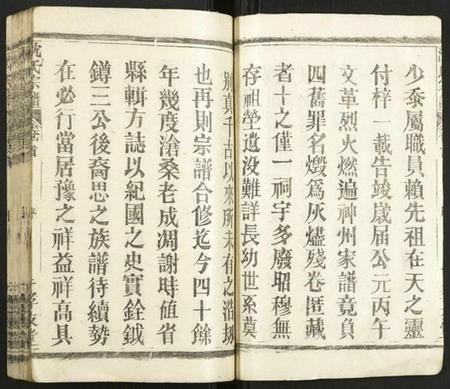 少忝屬職員賴先祖在天之靈
付梓一載告竣歲屆公元丙午
文革烈火燃遍神州家譜竟負
四舊罪名燬爲灰燼殘卷匿藏
者十之僅一祠宇多廢昭穆無
存祖塋遺没難詳長幼世系莫
辨真千古以來所未有之浩劫
也再則宗譜合修迄今四十餘
年幾度滄桑老成凋謝時值省
縣輯方誌以紀國之史實銓鉞
鐏三公後裔思之族譜待續勢
在必行當居豫之祥益祥高具
氏宗譜
卷首
序